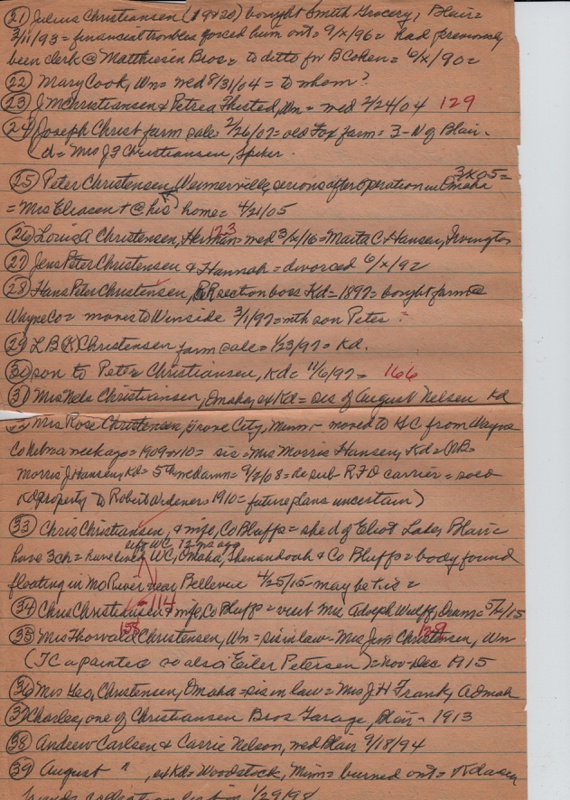 (21) Julius Christiansen (19 & 20) bought Smith Grocery, Blair =
3/11/93 = financial troubles forced him out = 9/x/96 = had previously
been clerk @ Matthiesen Bros = to ditto for B Cohen = 6/x/90 =
(22) Mary Cook, Wn = wed 8/31/04 = to whom?
(23) J M Christiansen & Petrea Thisted, Wn = wed 2/24/04 129
(24) Joseph Christ farm sale 2/26/07 = old Fox farm = 3-N of Blair.
(d = Mrs J F Christiansen, Spiker.
(25) Peter Christensen, serious after operation in Omaha 3/x/05 =
= Mrs @ his home = 4/21/05
(26) Louis A Christensen, Herman = wed 3/x/16 = Marta C Hansen, Irvington 123
(27) Jens Peter Christensen & Hannah = divorced 6/x/92
(28) Hans Peter Christensen, RR section boss Kd = 1897 = bought farm @
Wayne Co = moves to Winside 3/1/97 = with son Peter ?
(29) L B K Christensen farm sale = 1/23/97 = Kd.
(30) son to Pete Christiansen, Kd = 11/6/97 = 166
(31) Mrs Nels Christiansen, Omaha, ex Kd = sis of August Nelsen Kd
Mrs Rose Christensen, Grove City, Minn. - moved to G C from Wayne
Co Nebr a week ago = 1909 or 10 = sis = Mrs Morris Hansen, Kd =
Morris J Hansen, Kd = 5th = 9/3/08 = he sub R F D carrier = sold
Kd property to Robert 1910 = future plans uncertain)
(33) Chris Christiansen, & wife, Co Bluffs = she d of Eliot Lates, Blair =
left WC 12 mo ago
have 3 ch = have lived WC, Omaha, Shenandoah & Co Bluffs = body found
floating in Mo River near Bellevue 4/25/15 may be t.is =
(34) Chris Christiansen & wife, Co Bluffs = visit Mrs Adolph Wulff, = 5/x/15 114
(35) Mrs Thorvald Christensen, Wn = sis in law - Mrs Jens Christensen, Wn
(T C a painter so also Eiler Petersen) = Nov - Dec 1915
(36) Mrs Geo, Christensen, Omaha = sis in law = Mrs J H Frank, Admah
(37) Charles, one of Christiansen Bros Garage, Blair - 1913
(38) Andrew Carlsen & Carrie Nelson, wed Blair 9/18/94
(39) August " , ex Kd = Woodstock, Minn = burned out =
1/29/98